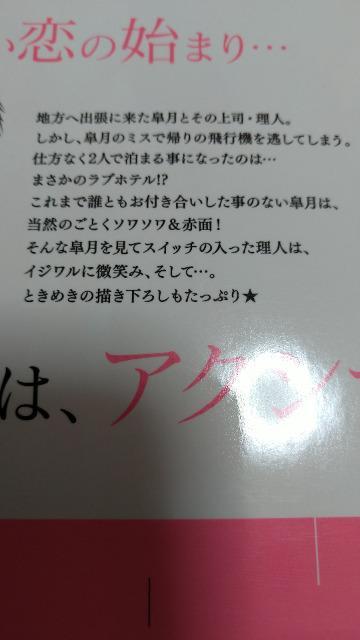 い恋の始まり…
地方へ出張に来た皐月とその上司・理人。
しかし、皐月のミスで帰りの飛行機を逃してしまう。
仕方なく2人で泊まる事になったのは…
まさかのラブホテル!?
これまで誰ともお付き合いした事のない皐月は、
当然のごとくソワソワ&赤面！
そんな皐月を見てスイッチの入った理人は、
イジワルに微笑み、そして…。
ときめきの描き下ろしもたっぷり★
は、アクシ